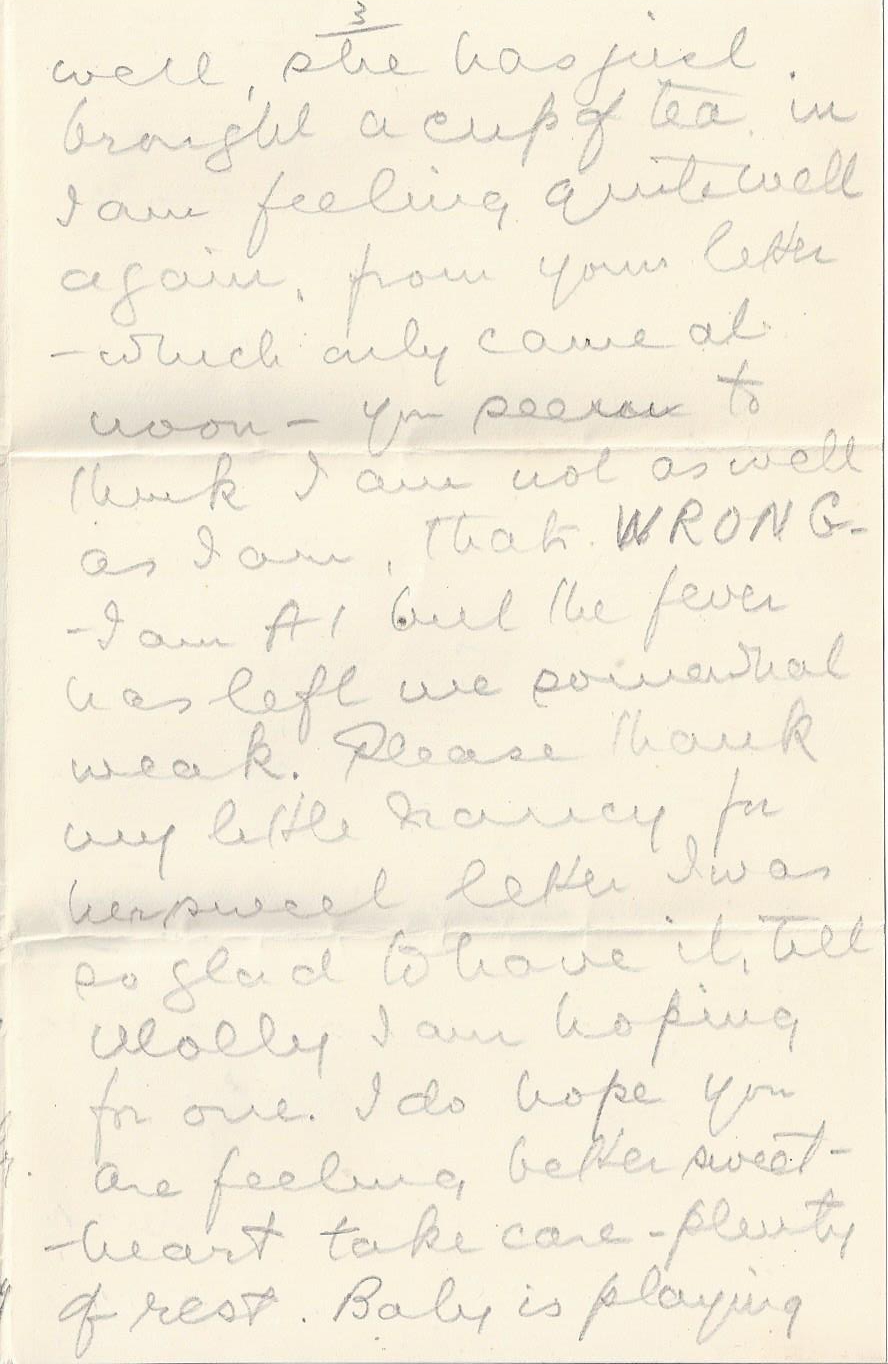 3
well, she has just
brought a cup of tea in
I am feeling quite well
again, from your letter
-which only came at
noon- you seem to
think I am not as well
as I am, thats WRONG-
-I am A1 but the fever
has left me somewhat
weak. Please thank
my little Nancy for
her sweet letter I was
so glad to have it, tell
Molly I am hoping
for one. I do hope you
are feeling better sweet-
-heart take care - plenty
of rest. Baby is playing